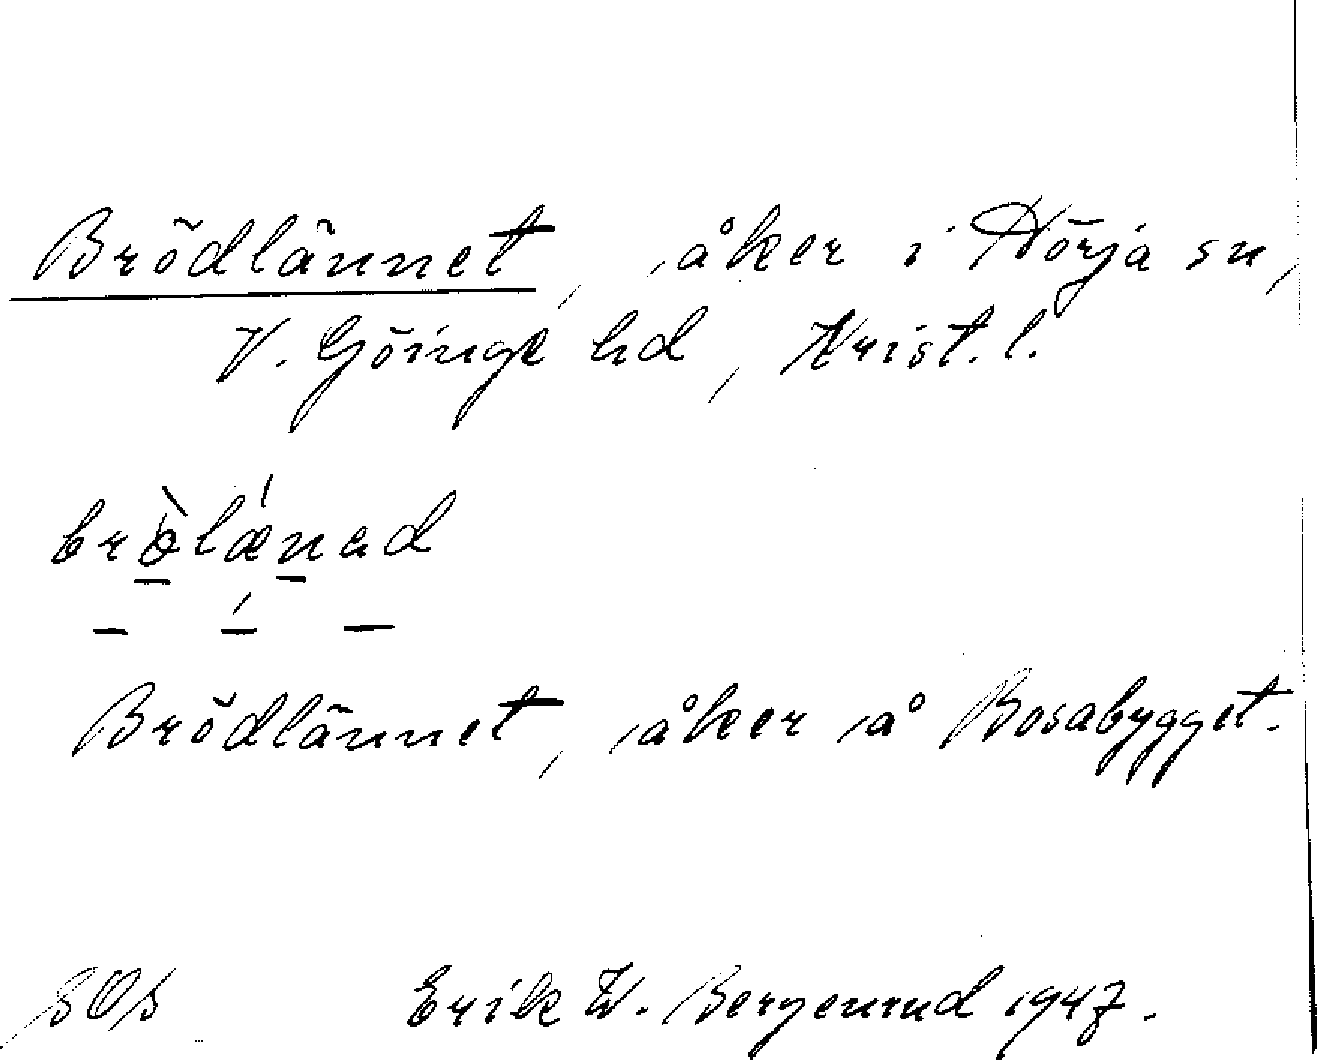 Brödlännet, åker i Nörja sn,
V. Göinge hd, Krist. l.
brölænad
Brödlännet, åker å Bosabygget.
SOS Erik W. Bergenrud 1947.